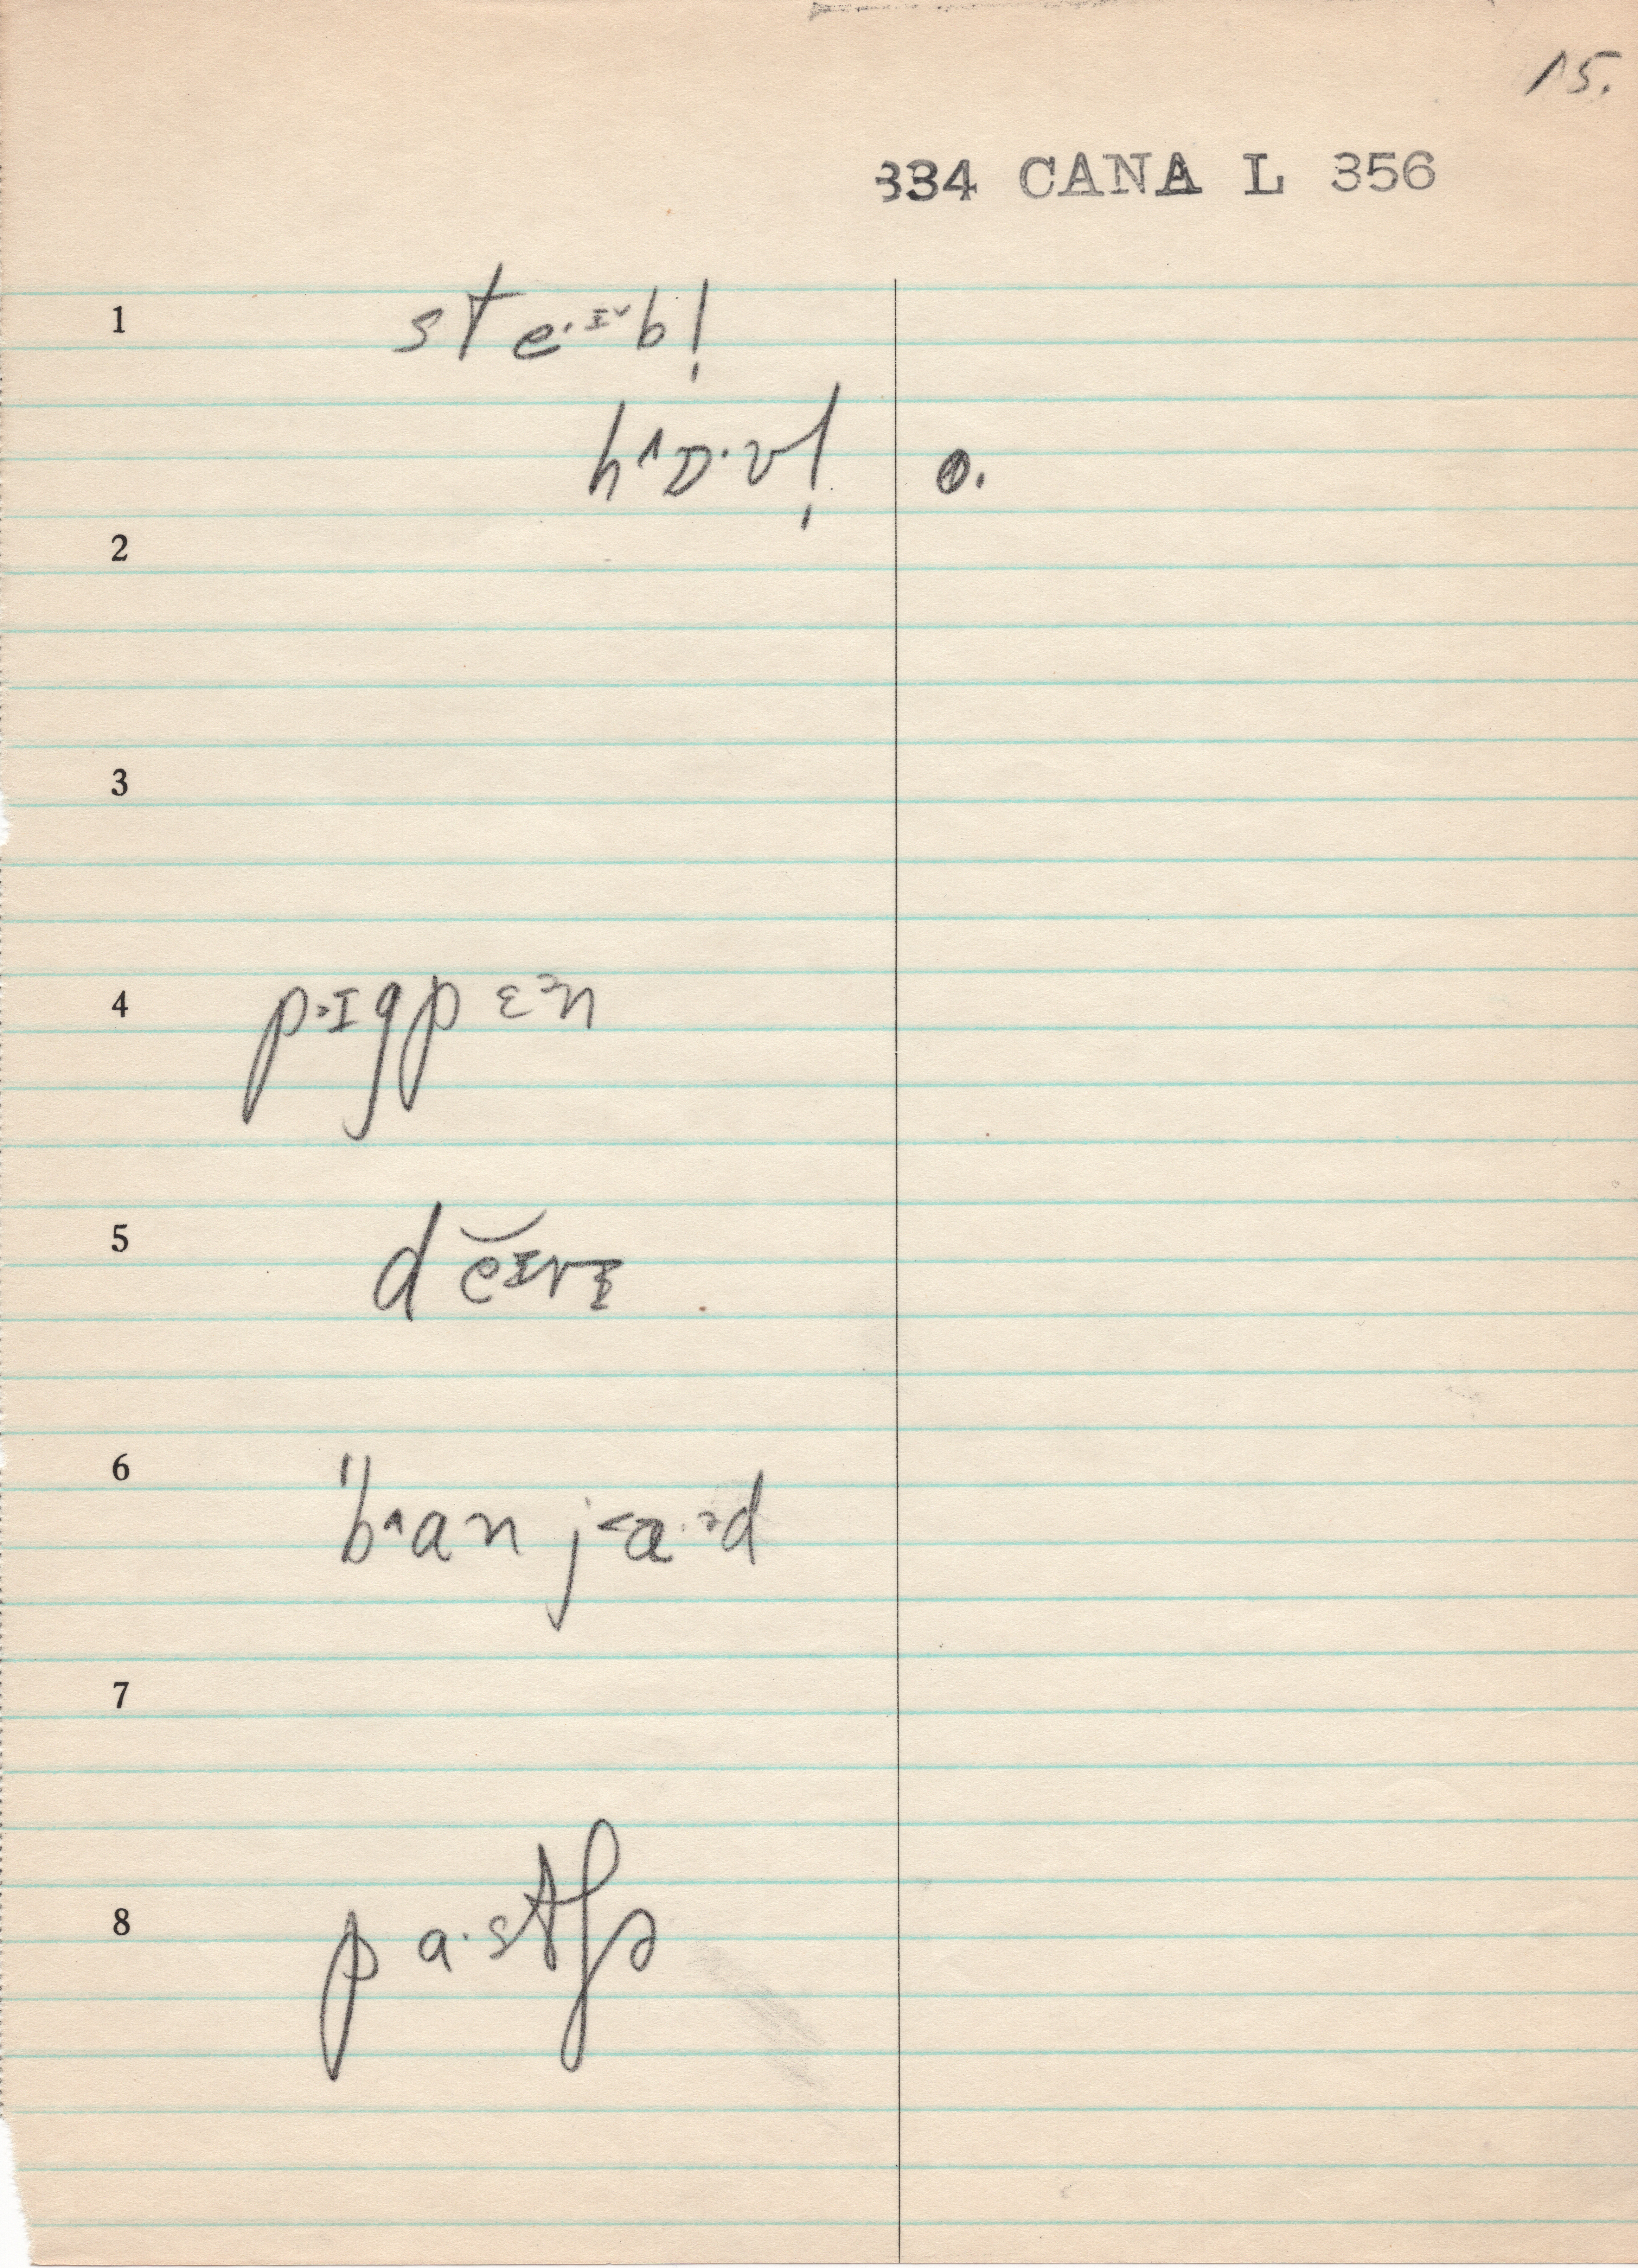 15.
334 CANA L 356
1 ste·ɪ˅b!
h˄ɒ·ʋ! o.
2
3
4 p˃ɪgpɛ˃n
5 dĕɪvɪ
6 "b˄an j˂a·˃d
7
8 pa·stʃɚ